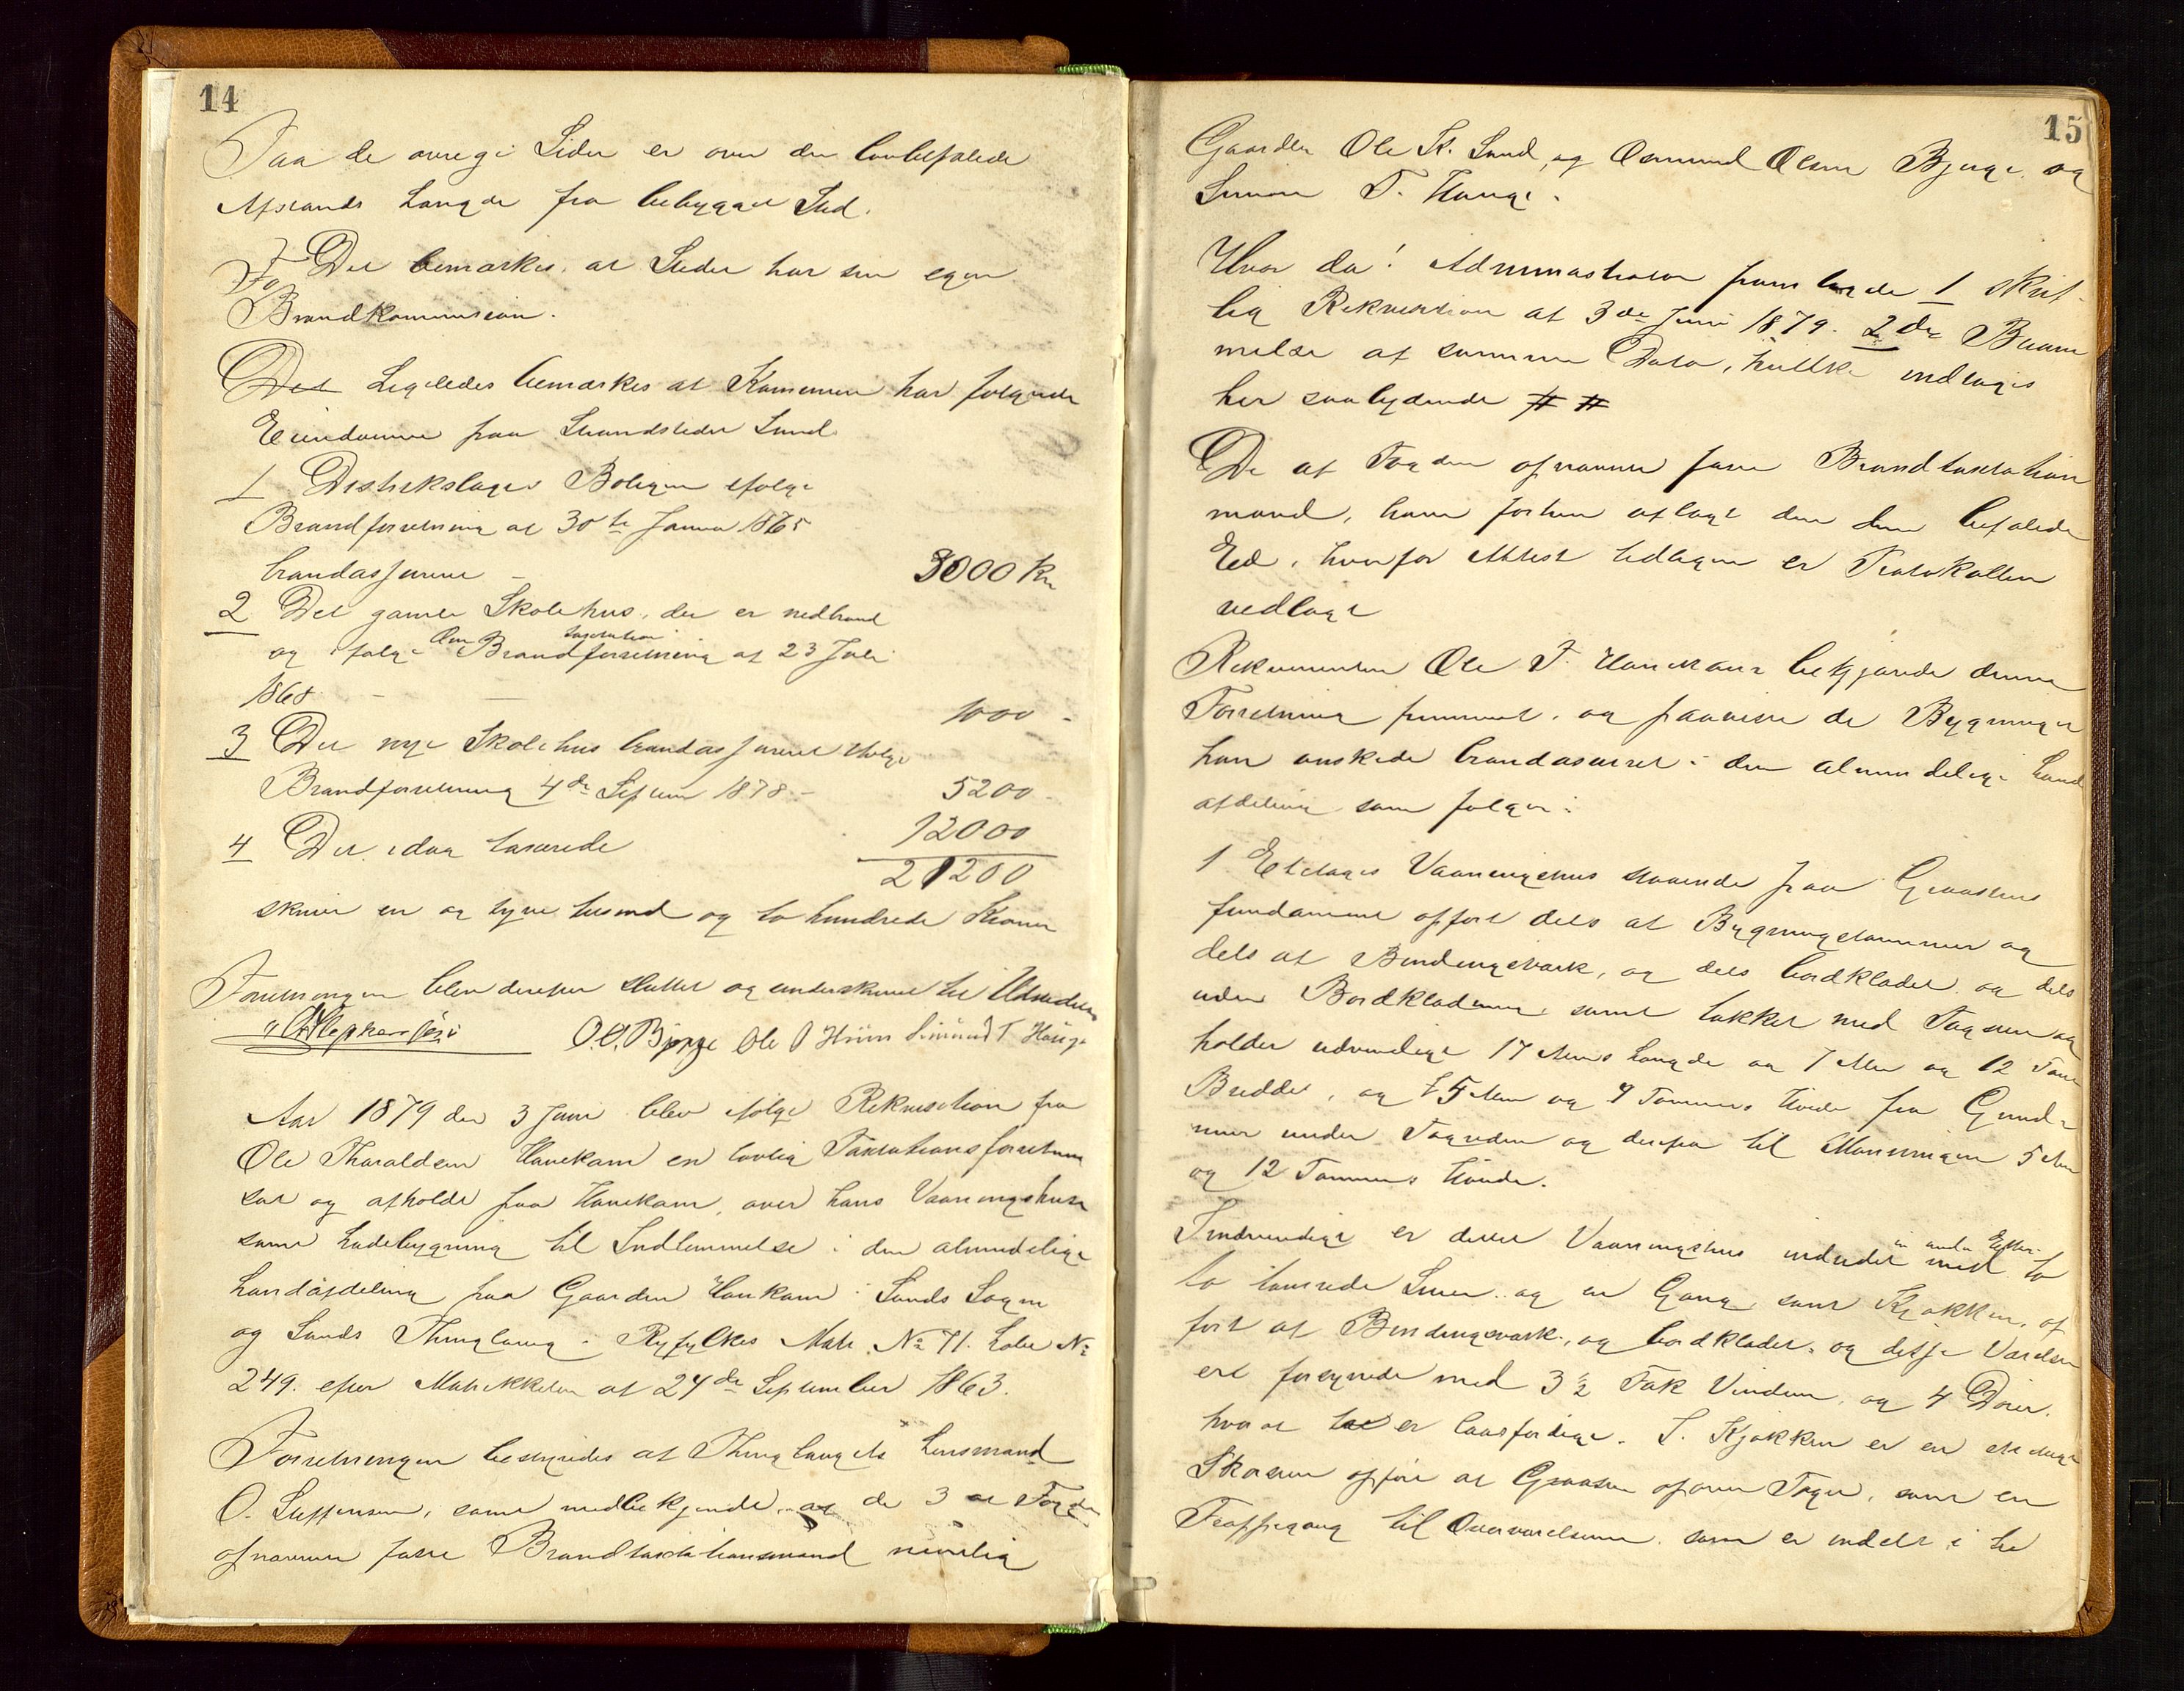 14
Paa de øvrige Sider er over den lovbefalede
Afstands Længde fra bebygget Sted.
Det bemærkes, at Stedet har sin egen
Brandkommission.
Det Ligeledes bemærkes at Kommunen har følgende
Eiendomme paa Strandstedet Sand
1 Distrikslæges Boligen ifølge
Brandforretning af 30te Janua 1865
brandassureret - 3000 Kr
2 Det gamle Skolehus, der er nedbrændt
og ifølge Om Brandforretning af 23 Juli
taxation
1868 - - 1000 -
3 Det nye Skolehus brandassureret ifølge
Brandforretning 4de Septem 1878 - 5200 -
4 Det idag taxerede 12000
21200
skriver en og tyve tusend og to hundrede Kroner
Forretningen blev derefter sluttet og underskrevet til Udstedelse
O. O. Bjørge Ole O Hiim Simund T Hauge
Aar 1879 den 3 Juni blev ifølge Rekvisition fra
Ole Tharaldsen Hanekam en lovlig Taxtationsforretning
sat og afholdt paa Hanekam, over hans Vaaningshuse
samt Ladebygning til Indlemmelse i den almindelige
Landafdeling paa Gaarden Hankam i Sands Sogn
og Sands Thinglaug i Ryfylkes Matr. No 71. Løbe No
249. efter Matrikkelen af 24de September 1863.
Forretningen bestyredes af Thinglaugets Lensmand
O. Steffensen, samt medbekjendt, af de 3 af Fogden
opnævnte faste Brandtaxtationsmænd nemlig
15
Gaarden Ole St. Sand, og Osmund Olsen Bjerge og
Simon T. Hauge.
Hvor da! Administrator fremlagde 1 skrift-
lig Rekvisition af 3de Juni 1879. 2de
melse af samme Dato, hvilke indtages
her saalydende # #
De af Fogden opnævnte faste Brandtaxtations
mænd, have forhen aflagt den dem befalede
Eed, hvorfor Attest tidligere er Protokollen
vedlagt
Rekvirenten Ole T. Hanekam bekjendte denne
Forretning fremmet, og paaviste de Bygninger
han ønskede brandassureret i den almindelige Land
afdeling som følger:
1 Etetages Vaaningshus staaende paa Graastens
fundament opført dels af Bygningstømmer og
dels af Bindingsværk, og dels bordklædet og dels
uden Bordklædning, samt takket med Tagsten og
holder udvendige 17 Alens Længde og 7 Alen og 12 Tom
Bredde, og 5 Alen og 9 Tommers Høide fra Grund-
muur under Tagreden og derfra til Mønningen 5 Alen
og 12 Tommers Høide.
Indvendige er dette Vaaningshus indredet med to
to tømrede Stuer og en Gang samt Kjøkken, op
ført af Bindingsværk, og bordklædet, og disse Værelser
ere forsynede med 3 1/2 Fak Vinduer, og 4 Døre.
hvoraf er laasfærdige. I Kjøkken er en etetages
Skorsten opført af Graasten ofover Taget, samt en
Trappegang til Overværelserne som er inddelt i tre